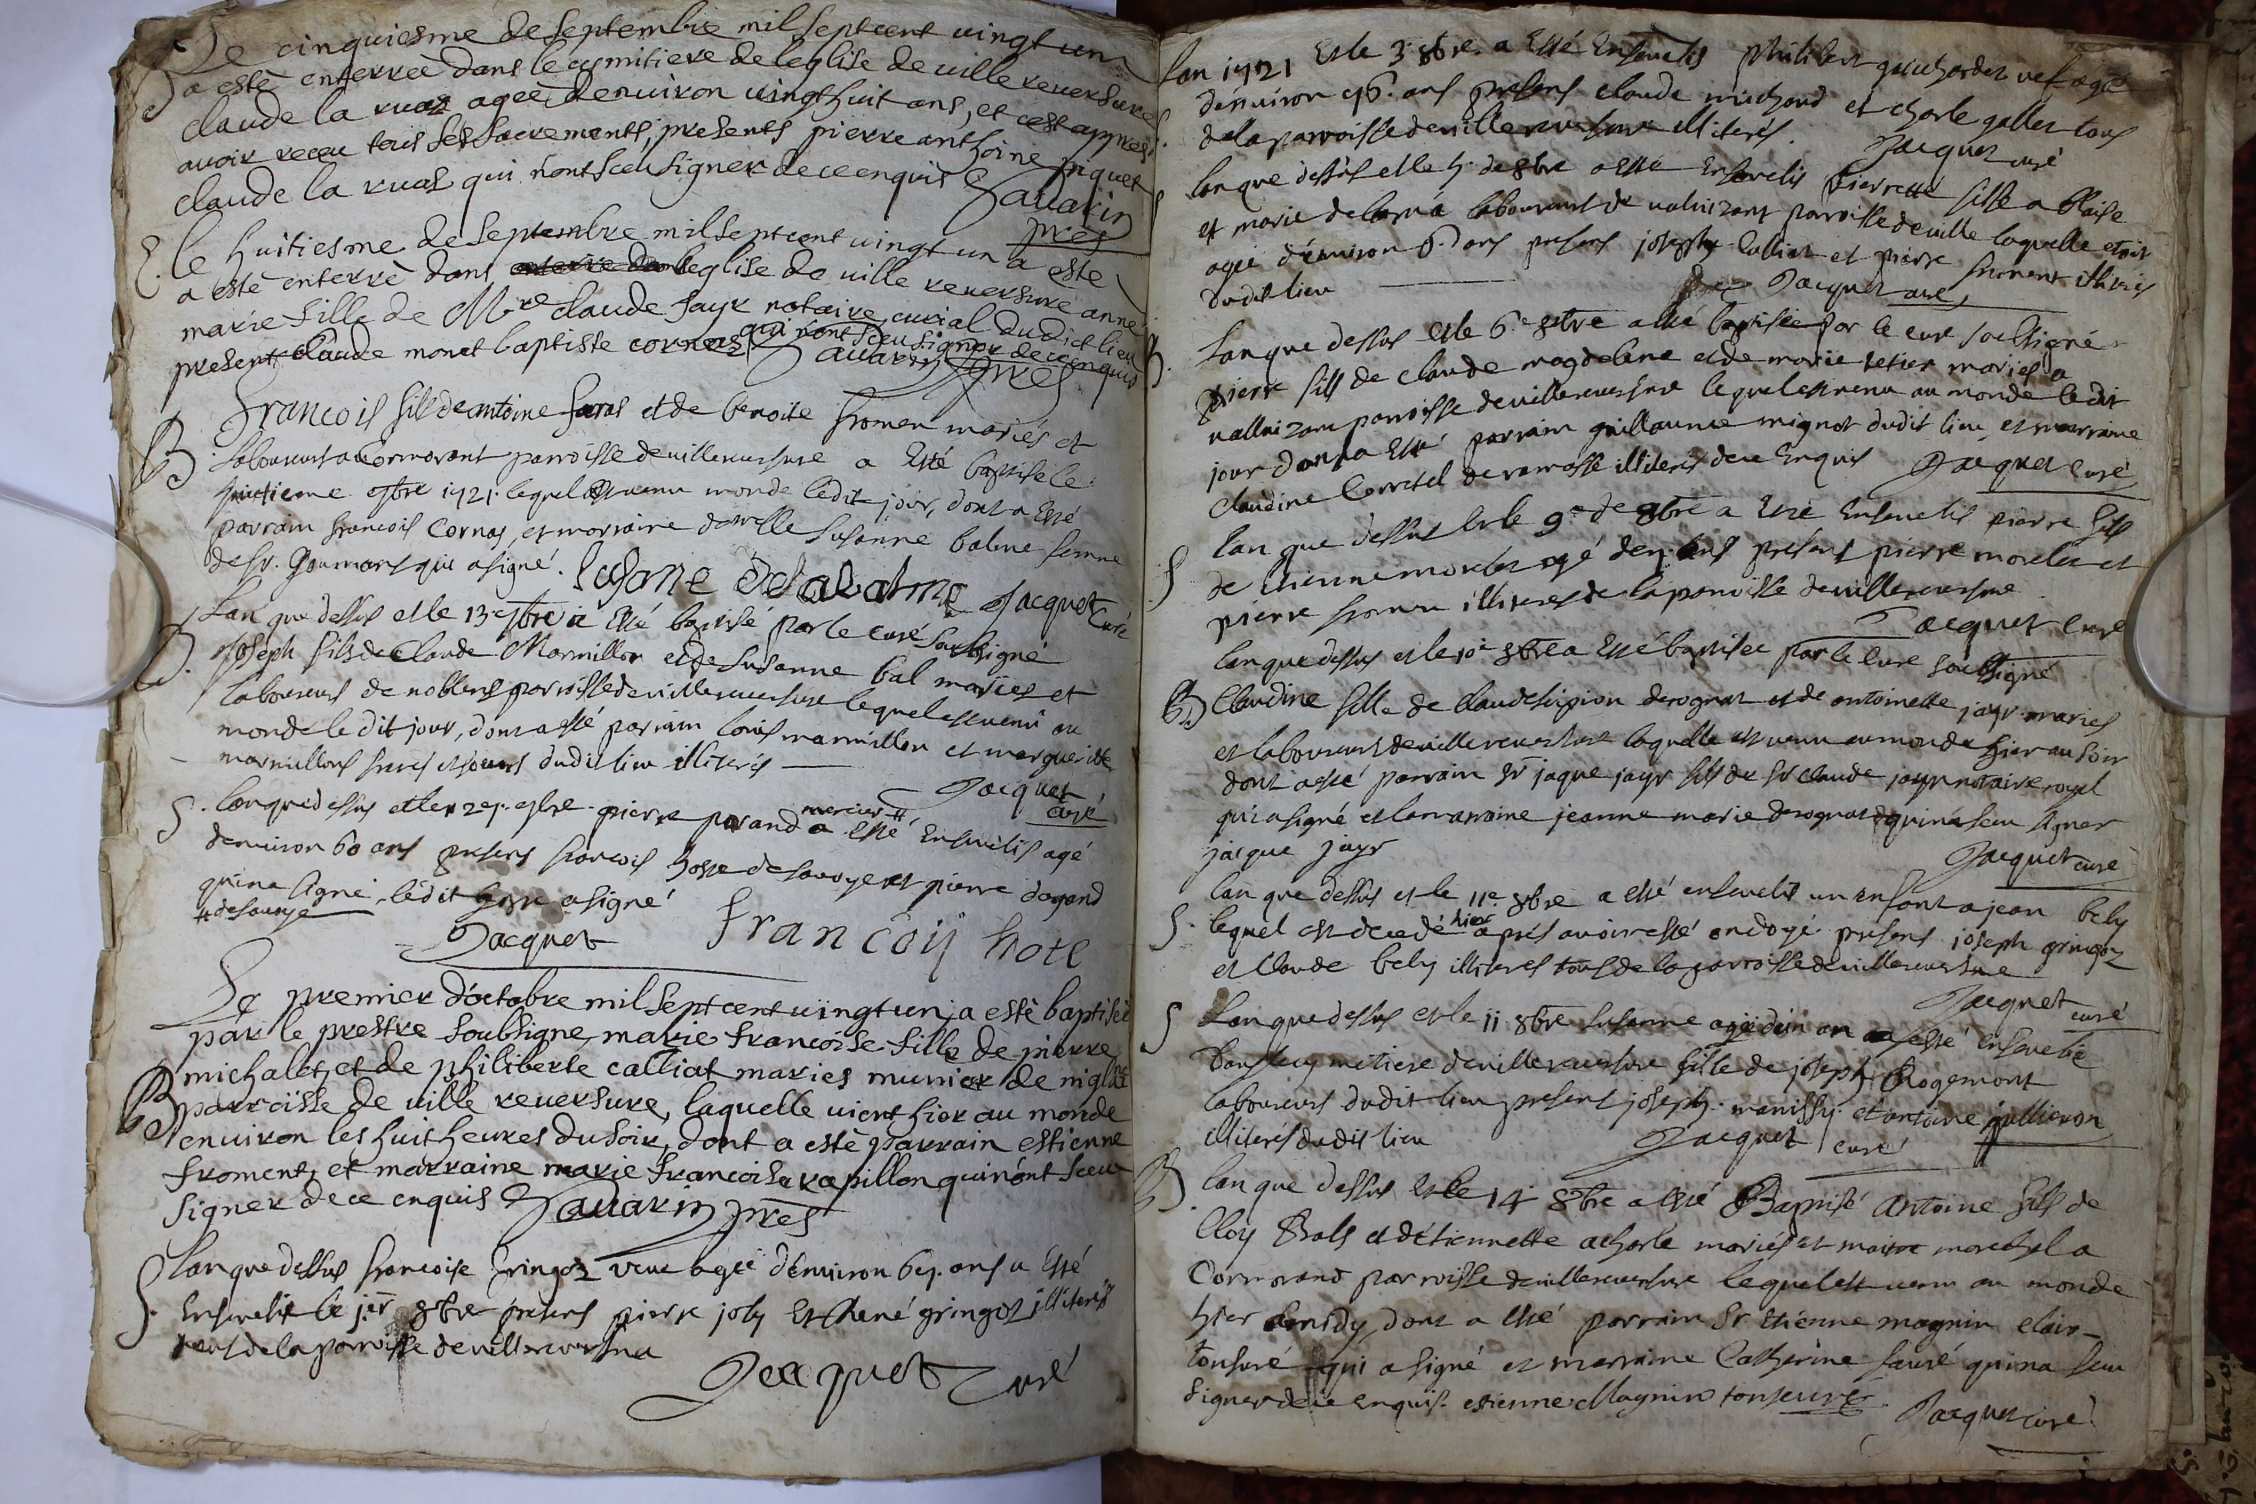 Le cinquiesme de septembre mil sept cent vingt un
a esté enterreé dans le cymitiere de leglise de ville reversure
claude la ruaz ageé denviron vingt huit ans, et cest appres
avoir receu tous ses sacrements, presents pierre anthoine piquet
claude la ruas qui nont sceu signer de ce enquis
Savarin
pres
E. le huitiesme de septembre mil sept cent vingt un a esté
a esté enterré dans leglise de ville reversure anne
marie fille de Mre claude Jayr notaire curial du dict lieu
present claude monet baptiste cornas qui nont sceu signer de ce enquis
Savarin pres
B. Francois fils de antoine et de benoite fromen mariés et
laboureurs a Cormorant parroisse de villereversure a Esté baptisé le
huictieme 7bre 1721. lequel est venu monde ledit jour, dont a Esté
parrain francois Cornas, et marraine damelle Susanne balme femme
de Sr. Goumard qui a signé. Susane delabalme Jacquet Curé
B. Lan que dessus et le 13e 7bre a Esté baptisé par le curé soubsigné
Joseph fils de Claude Marmillon et de Susanne bal mariés et
laboureurs de noblens parroisse de villereversure lequel est venu au
monde le dit jour, dont a esté parrain louis marmillon et marguerite
marmillons freres et soeurs dudit lieu illiterés
Jacquet
curé
S. lan que dessus et le 27. 7bre pierre parand mercier # a Esté Ensevelis agé
denviron 60 ans presens francois hosse de savoye et pierre dagand
qui na signé, ledit hosse a signé
# de savoye
Jacquet françoij hote
Le premier doctobre mil sept cent vingt un, a esté baptiseé
par le prestre soubsigné, marie francoise fille de pierre
B michalet, et de philiberte calliat maries munier de
parroisse de ville reversure, laquelle vient hier au monde
environ les huit heures du soir, dont a esté parrain estienne
froment, et marraine marie francoise rapillon qui nont sceu
signer de ce enquis Savarin pres
S. lan que dessus francoise gringoz veuve ageé denviron 67. ans a Esté
Ensevelie le jer 8bre presens pierre joly Et René gringoz illiterés
tous de la parroisse de villereversure
Jacquet Curé
S. Lan 1721 Et le 3e 8bre. a Esté Ensevelis philibert veuf agé
denviron 76. ans presens claude michond et charle gallet tous
de la parroisse de villereversure illiterés. Jacquet curé
S lan que dessus et le 5. de 8bre a Esté Ensevelis pierrette fille a blaise
et marie laboureurs de valuizant parroisse de ville laquelle etoit
ageé denviron 6. ans presens joseph Calliat et pierre froment illiterés
dudit lieu Jacquet curé
B. Lan que dessus et le 6e 8bre a esté baptisée par le curé soubsigné
pierre fils de claude magdelene et de marie mariés a
valluizan parroisse de villereversure lequel est venu au monde le dit
jour dont a Esté parrain guillaume mignot dudit lieu, et marraine
claudine de ramasse illiterés de ce Enquis Jacquet Curé
S lan que dessus et le 9e de 8bre a Esté Ensevelis pierre fils
de Etienne morelet agé de 7. ans presens pierre morelet et
pierre fromen illiteres de la parroisse de villereversure
Jacquet Curé
B. lan que dessus et le 10e 8bre a Esté baptisée par le curé soubsigné
Claudine fille de Claude scipion derognat et de antoinette jayr mariés
et laboureurs de villereversure laquelle est venu au monde hier au soir
dont a esté parrain Sr jaque jayr fils de Sr claude jayr notaire royal
qui a signé et la marraine jeanne marie derognat qui na seu signer
jacque jayr Jacquet curé
S. lan que dessus et le 11e 8bre a esté ensevelit un enfant a jean bely
lequel est decedé hier aprés avoir esté ondoyé presens joseph gringoz
et Claude bely illiteres tous de la parroisse de villereversure
Jacquet curé
S Lan que dessus et le 11 8bre Susanne agée dun an a esté ensevelie
dans le cymetiere de villereversure fille de joseph Rogemont
laboureurs dudit lieu presens joseph et antoine jullieron
illiterés dudit lieu Jacquet curé
B. lan que dessus et le 14 8bre a esté Baptisé Antoine fils de
Cloy Bals et détiennette acharle mariés et maitre marechal a
Cormorand parroisse de villereversure lequel est venu au monde
hier a midy, dont a esté parrain Sr Etienne magnin clair-
tonsuré qui a signé et marraine Catherine fauré qui na seu
signer de ce enquis. estienne Magnin tonseuré Jacquet curé